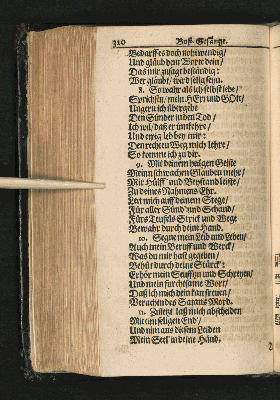 320 Buß-Gesänge.
Bedarff es doch nohtwendig/
Und gläub dem Worte dein/
Das mir zusagt beständig:
Wer gläubt/ werd selig seyn.
8. So wahr als ich selbst lebe/
Sprichstu/ mein HErr und GOtt/
Ungern ich übergebe
Den Sünder in den Tod/
Ich wil/ daß er ümkehre/
Und ewig leb bey mir:
Den rechten Weg mich lehre/
So komme ich zu dir.
9. Mit deinem heilgen Geiste
Meinn schwachen Glauben mehr/
Mir Hülff und Beystand leiste/
Zu deines Nahmens Ehr.
Leit mich auff deinem Stege/
Für aller Sünd und Schand/
Fürs Teufels Strick und Wege
Bewahr durch deine Hand.
10. Segne mein Leib und Leben/
Auch mein Beruff und Werck/
Was du mir hast gegeben/
Behüt durch deine Stärck:
Erhör mein Seufftzn und Schreyen/
Und mein furchtsame Wort/
Daß ich mich dein kan freuen/
Verachten des Satans Mord.
11. Zuletzt laß mich abscheiden
Mit eim seligen End/
Und nim aus diesem Leiden
Mein Seel in deine Händ.